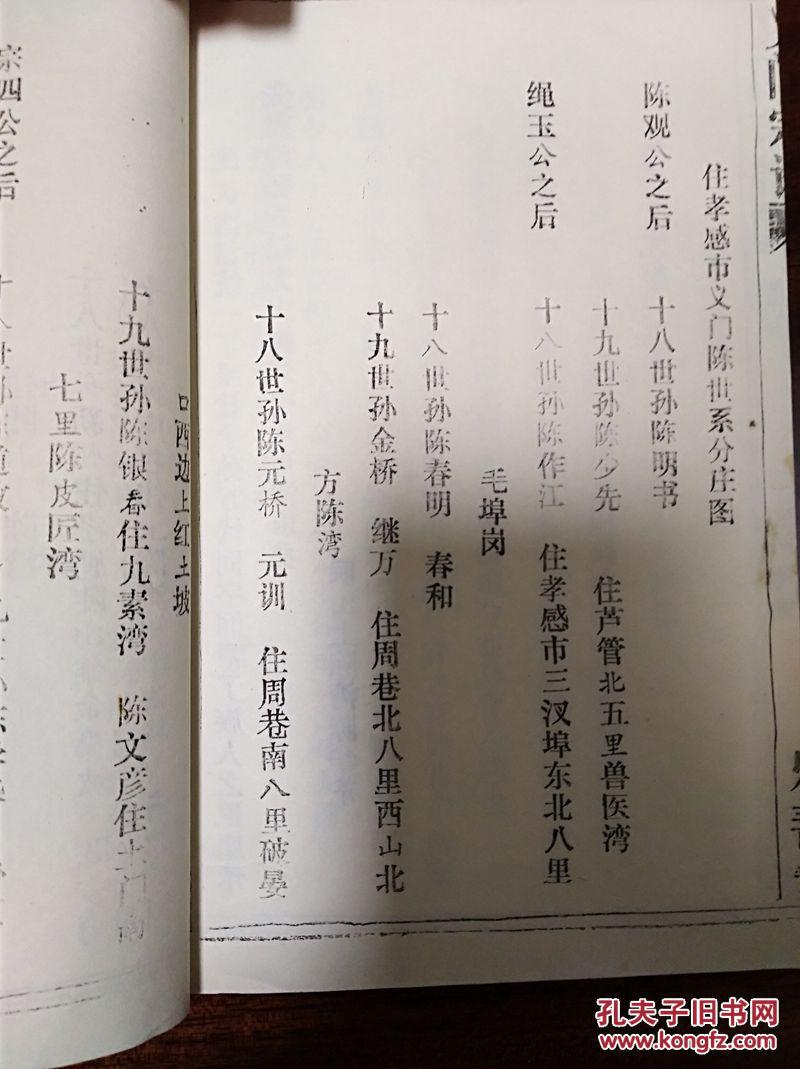 住孝感市义门陈世系分庄图
陈观公之后 十八世孙陈明书
十九世孙陈少先 住芦管北五里兽医湾
绳玉公之后 十八世孙陈作江 住孝感市三汊埠东北八里
毛埠岗
十八世孙陈春明 春和
十九世孙金桥 继万 住周巷北八里西山北
方陈湾
十八世孙陈元桥 元训 住周巷南八里破晏
口西边上红土坡
十九世孙陈银春住九素湾 陈文彦住土门南
七里陈皮匠湾
宗四公之后
孔夫子旧书网
www.kongfz.com